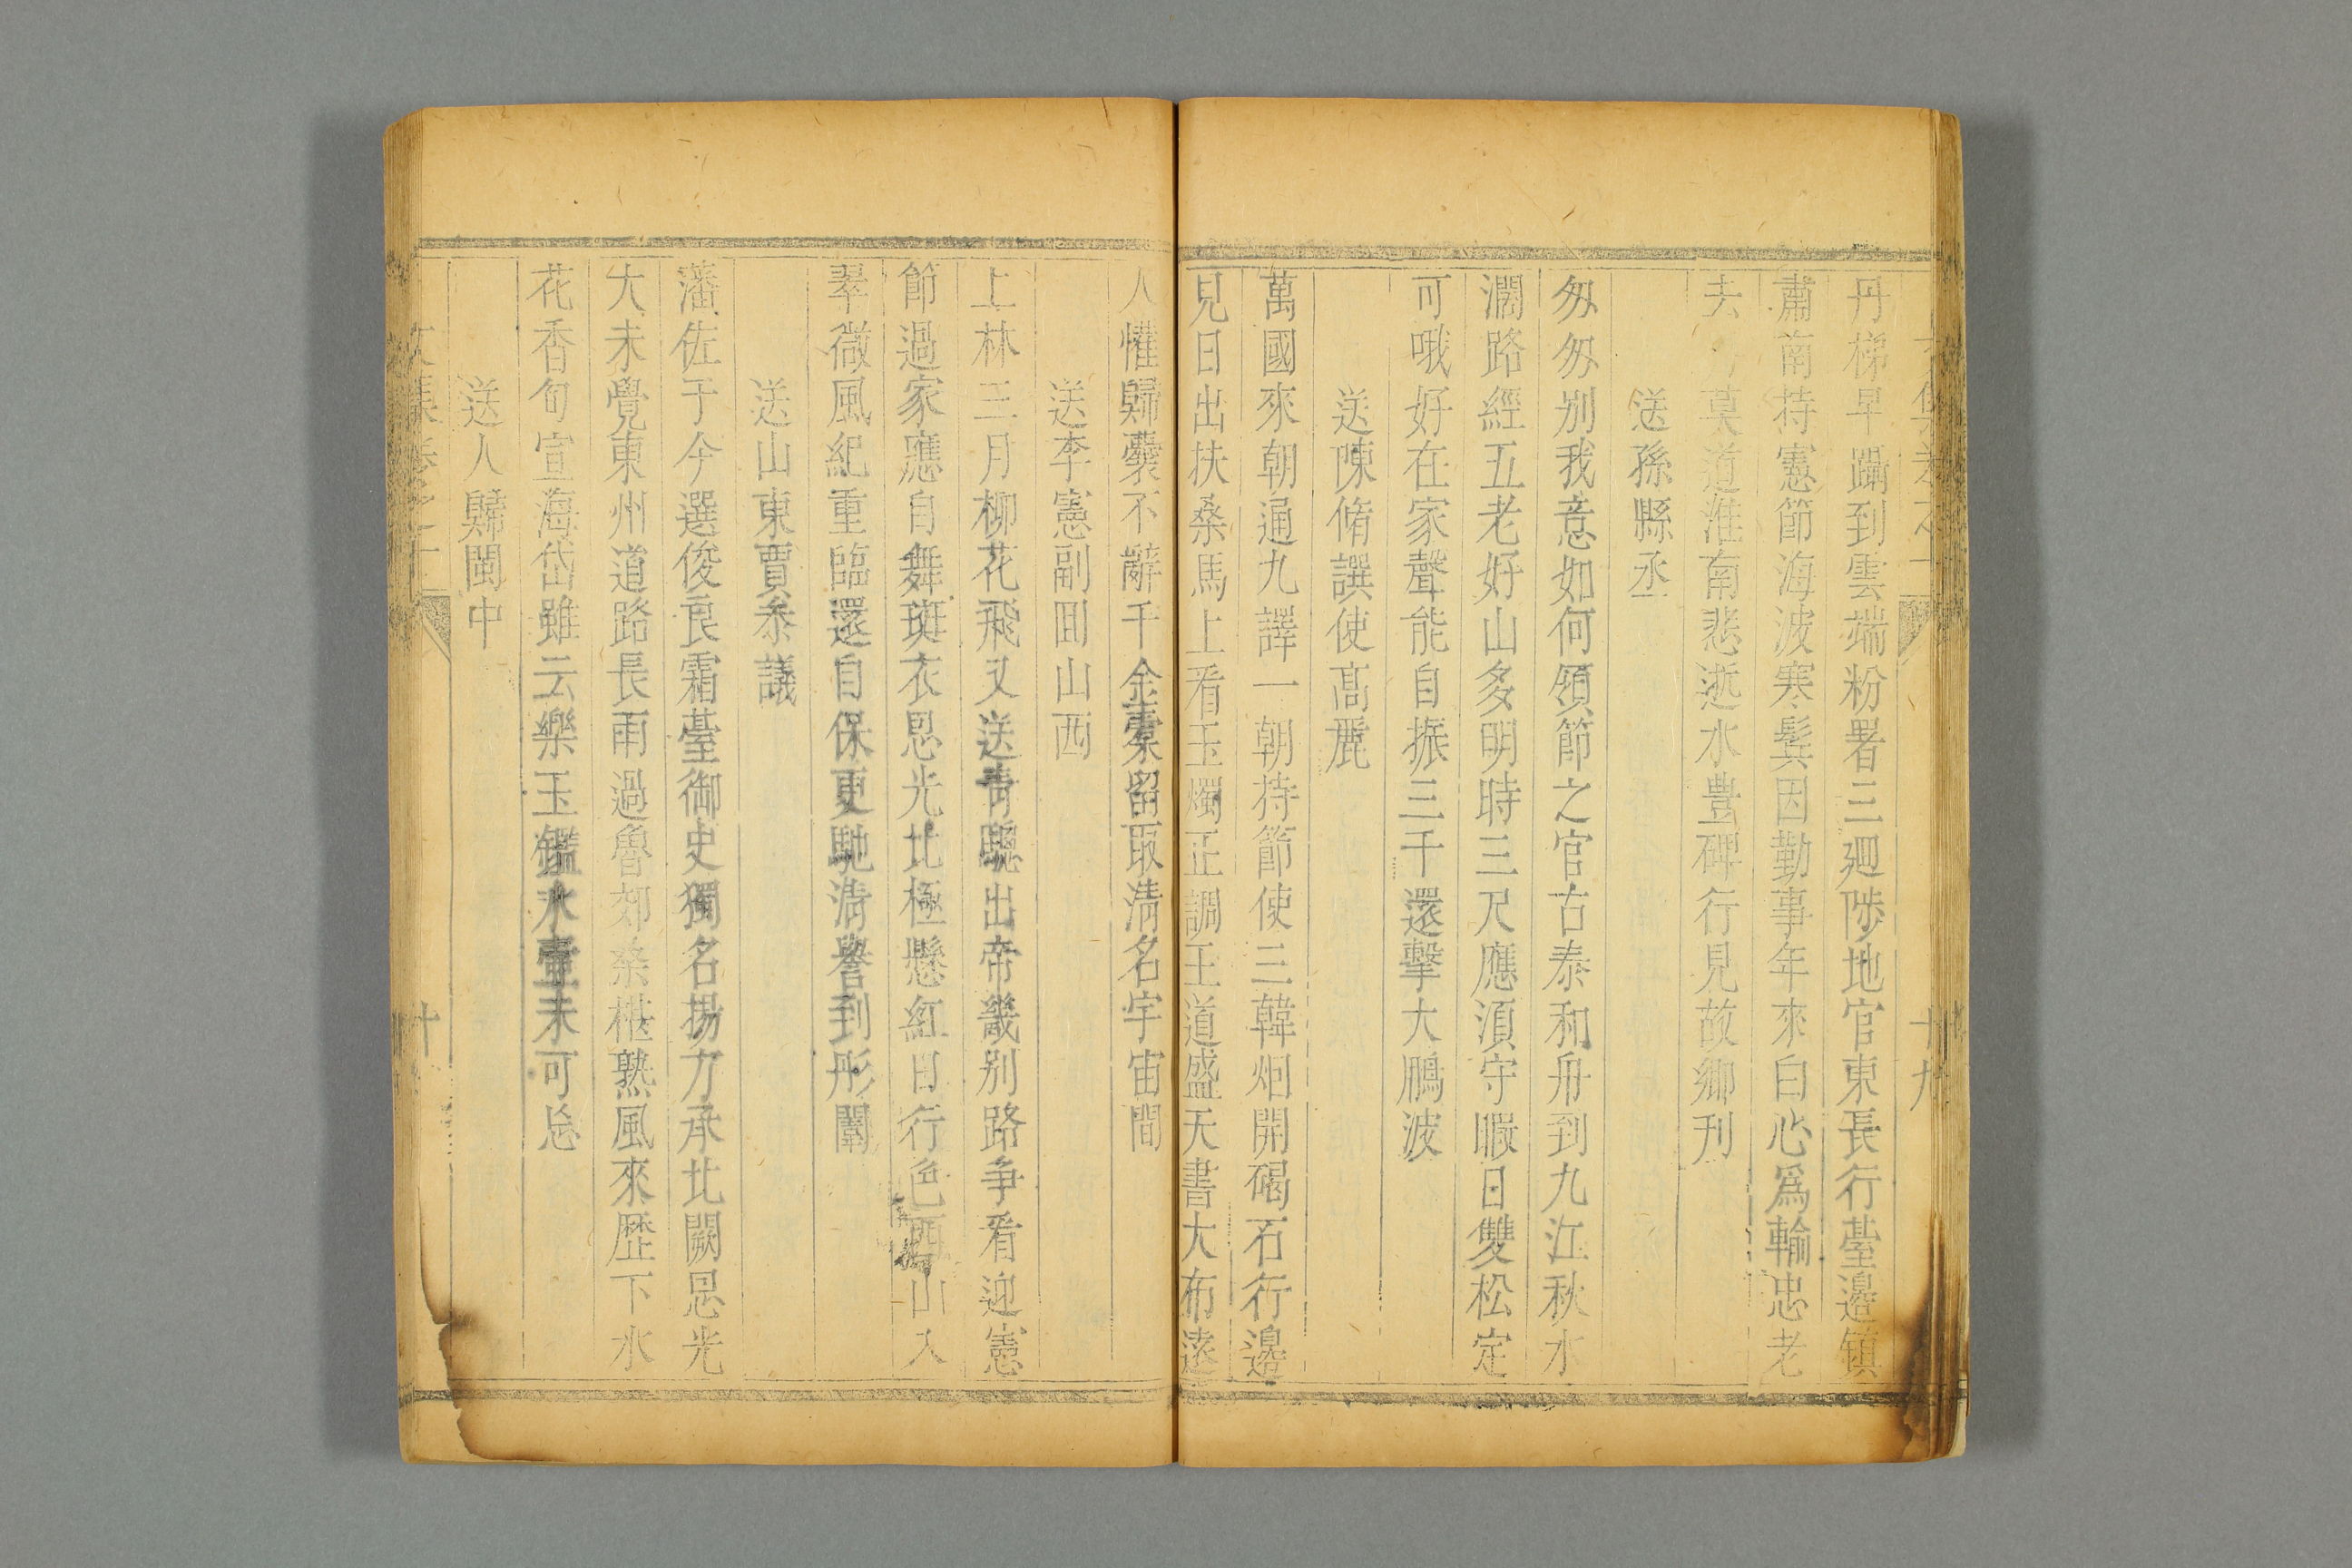 丹梯早躡到雲端粉署三廻陟地官東長行䑓邊鎮
肅南持憲節海波寒鬂因勤事年來白心爲輸忠老
去莫道淮南悲逝水豊碑行見故鄉刋
送孫縣丞
匆匆别我意如何領節之官古泰和舟到九江秋水
濶路經五老好山多明時三尺應湏守暇日雙松定
可哦好在家聲能自振三千還擊大鵬波
送陳脩譔使髙麗
萬國來朝通九譯一朝持節使三韓烟開碣石行邊
見日出扶桑馬上看玉燭正調王道盛天書大布逺
十九
人懽歸橐不辭千金槖留取清名宇宙間
送李憲副囬山西
上林三月柳花飛又送青驄出帝畿别路争看迎憲
節過家應自舞斑衣恩光北極懸紅日行色西山入
翠微風紀重臨還自保更馳清譽到彤闈
送山東賈叅議
藩佐于今選俊良霜䑓御史獨名揚方承北闕恩光
大未覺東州道路長雨過魯郊桑椹熟風來歷下水
花香旬宣海岱雖云樂玉鑑氷壷未可忘
送人歸閩中
文集卷之十